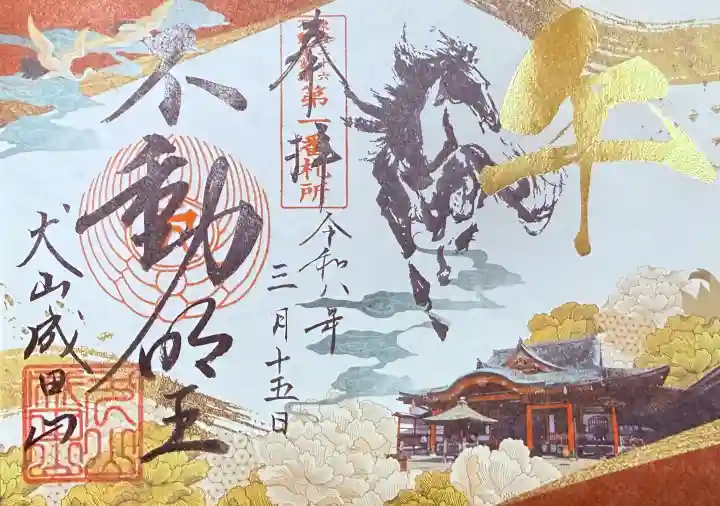 午
奉拝
第一番札所
令和八年
三月十五日
不動明王
犬山成田山